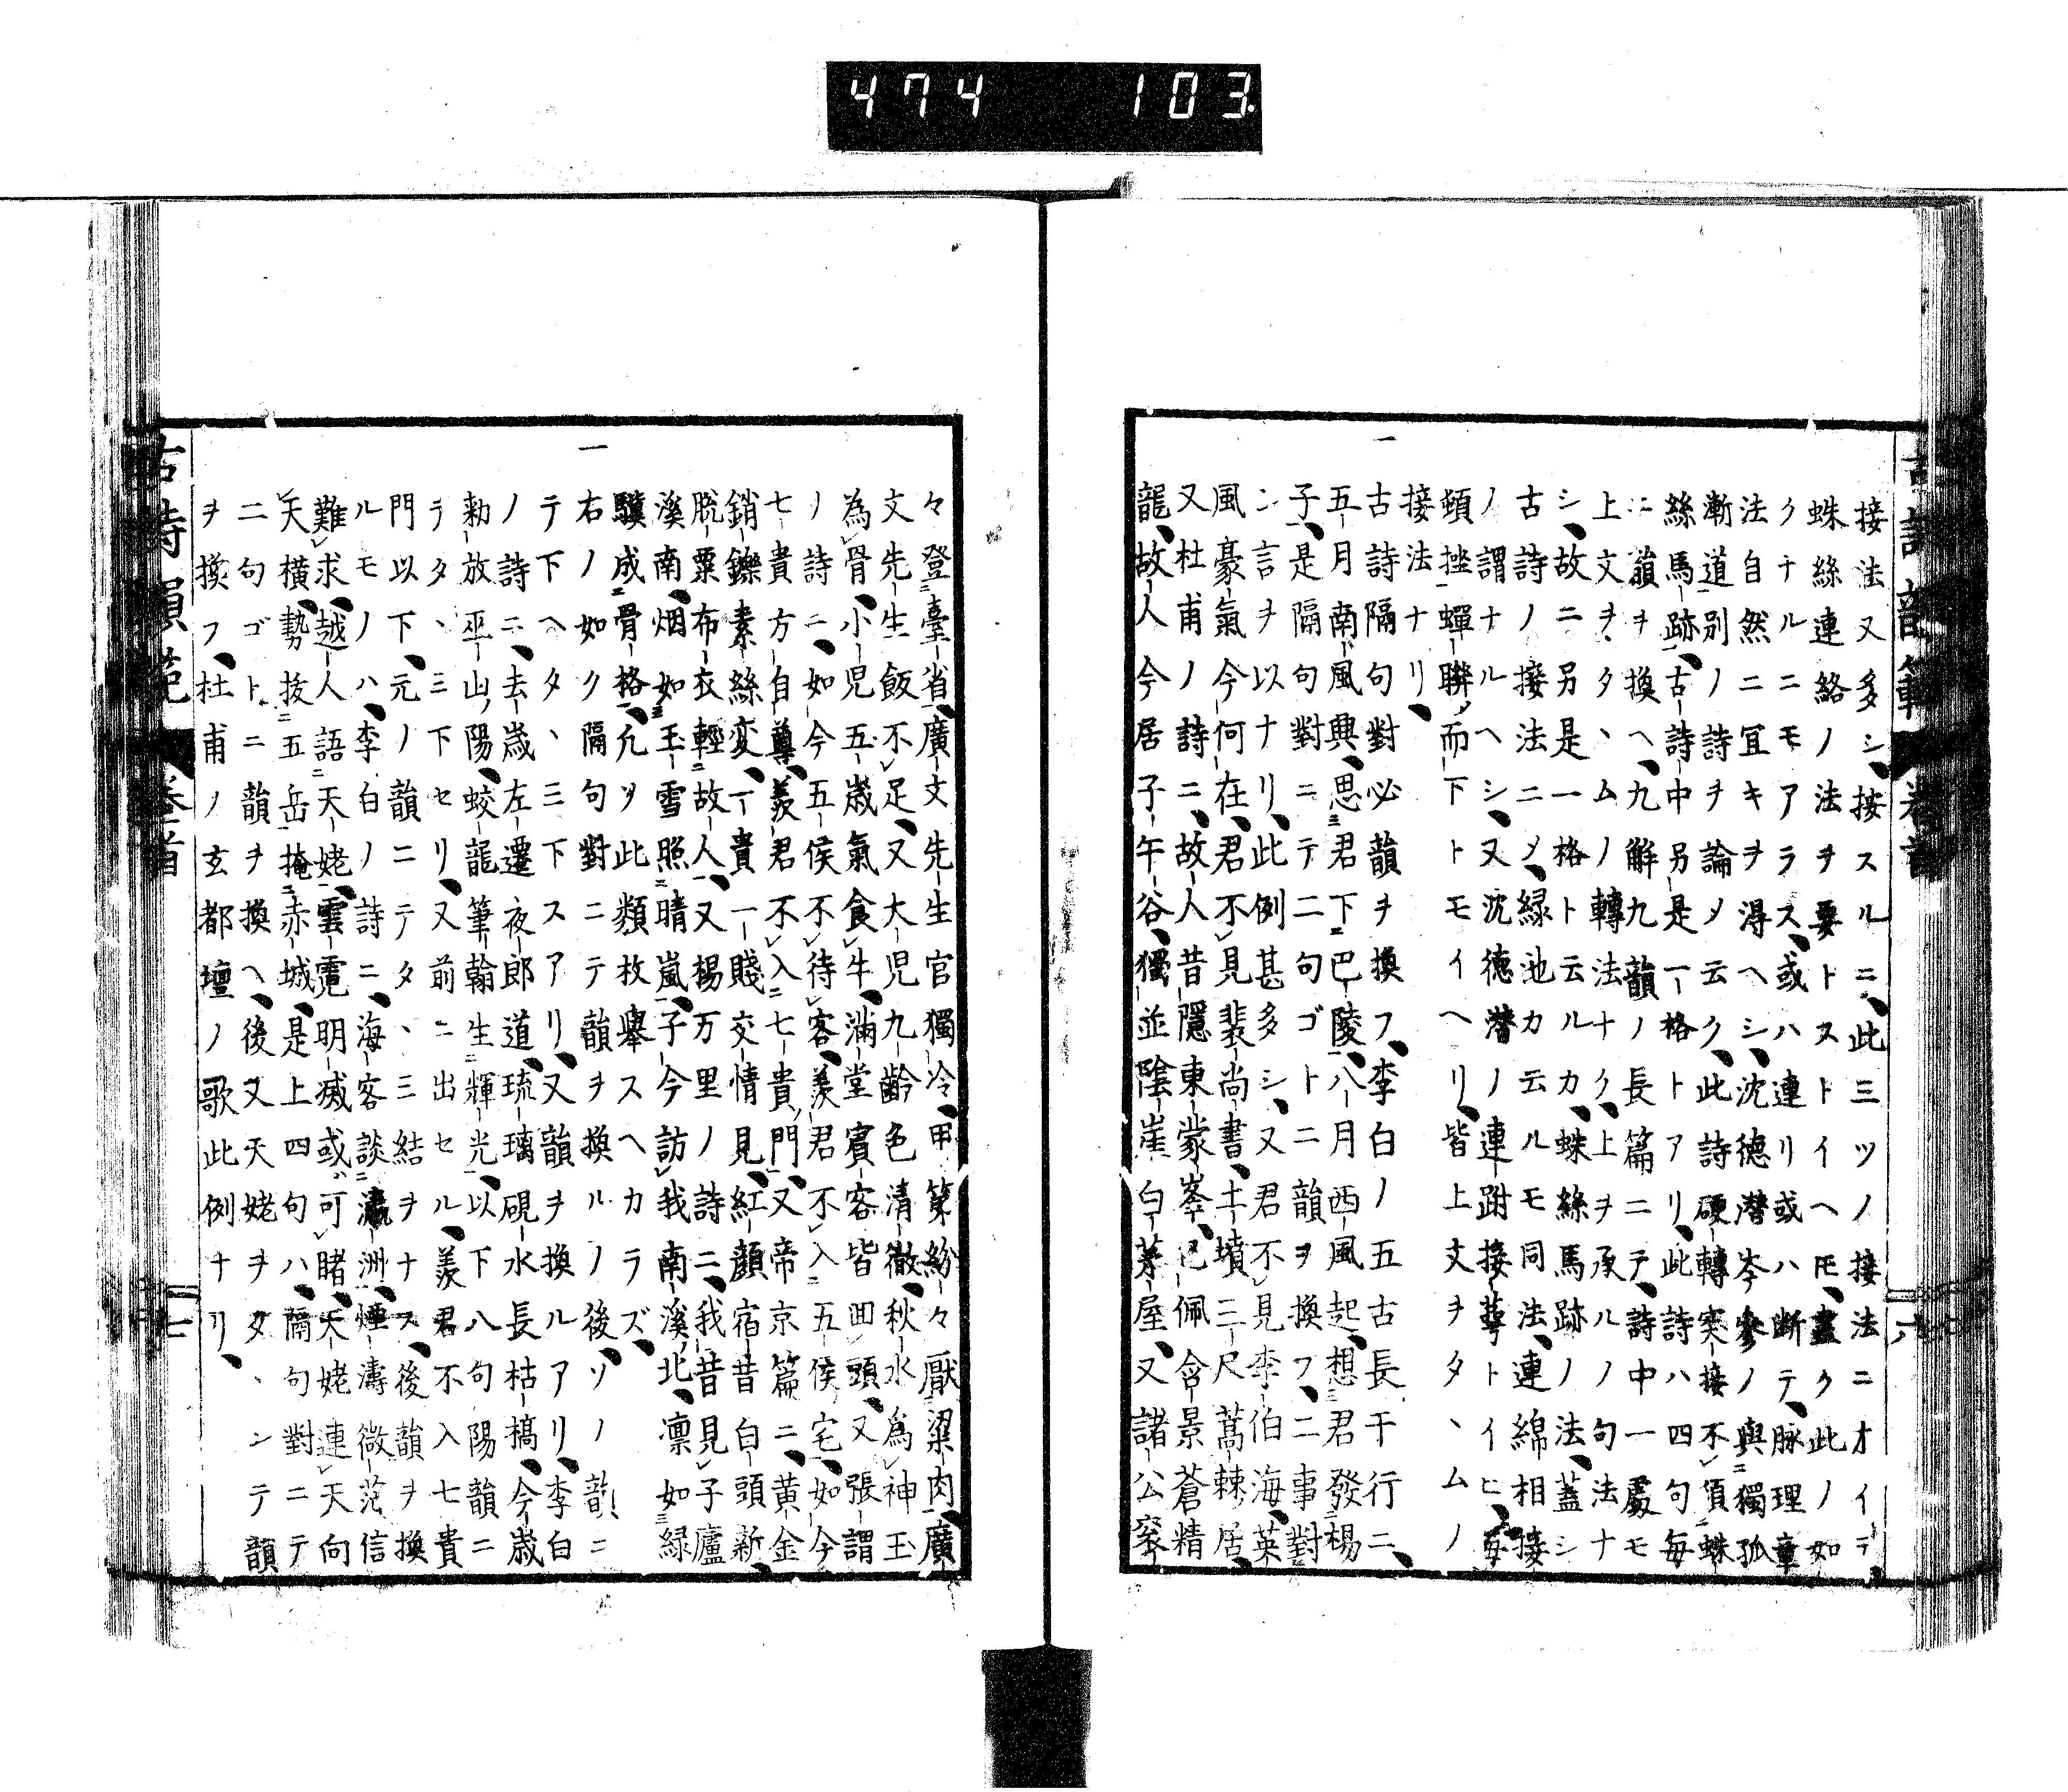 474 103.
接法又多シ、接スルニ、此三ツノ接法ニオイテ
蛛絲連絡ノ法ヲ要トストイヘ𪜈、盡ク此ノ如
クナルニモアラス、或ハ連リ或ハ断テ、脉理章
法自然ニ冝キヲ淂ヘシ、沈徳潜岑參ノ與獨孤
漸道別ノ詩ヲ論メ云ク、此詩硬轉突接不須蛛
絲馬跡、古詩中另是一格トアリ、此詩ハ四句毎
ニ韻ヲ換ヘ、九解九韻ノ長篇ニテ、詩中一處モ
上文ヲタヽムノ轉法ナク、上ヲ承ルノ句法ナ
シ、故ニ另是一格ト云ルカ、蛛絲馬跡ノ法、蓋シ
古詩ノ接法ニメ、緑池カ云ルモ同法、連綿相接
ノ謂ナルヘシ、又沈德潜ノ連跗接蕚トイヒ、毎
頸挫蟬聯而下トモイヘリ、皆上文ヲタヽムノ
接法ナリ、
一古詩隔句對必韻ヲ換フ、李白ノ五古長干行ニ、
五月南風興、思君下巴陵、八月西風起、想君發楊
子、是隔句對ニテ二句ゴトニ韻ヲ換フ、二事對
ン言ヲ以ナリ、此例甚多シ、又君不見李伯海英
風豪氣今何在、君不見裴尚書、土墳三尺蒿棘居、
又杜甫ノ詩ニ、故人昔隱東蒙峯、已佩含景蒼精
龍、故人今居子午谷、獨並陰崖白茅屋、又諸公衮
々登臺省、廣文先生官獨冷、甲第紛々厭粱肉、廣
文先生飯不足、又大児九齡色清徹、秋水為神玉
為骨、小児五歳氣食牛、滿堂賓客皆回頭、又張謂
ノ詩ニ、如今五侯不待客、羨君不入五侯宅、如今
七貴方自尊、羨君不入七貴門、又帝京篇ニ、黄金
銷鑠素絲変、一貴一賤交情見、紅顔宿昔白頭新、
脱粟布衣輕故人、又楊万里ノ詩ニ、我昔見子廬
溪南、烟如玉雪照晴嵐、子今訪我南溪北、凛如緑
驥成骨格、凢ソ此類枚舉スヘカラズ、
一右ノ如ク隔句對ニテ韻ヲ換ルノ後、ソノ韻ニ
テ下ヘタヽ三下スアリ、又韻ヲ換ルアリ、李白
ノ詩ニ、去歳左遷夜郎道、琉璃硯水長枯槁、今歳
勑放巫山陽、蛟龍筆翰生輝光、以下八句陽韻ニ
テタヽ三下セリ、又前ニ出セル、羨君不入七貴
門以下、元ノ韻ニテタヽ三結ヲナス、後韻ヲ換
ルモノハ、李白ノ詩ニ、海客談瀛洲、煙濤微茫信
難求、越人語天姥、雲霓明滅或可睹、天姥連天向
天橫、勢拔五岳掩赤城、是上四句ハ、隔句對ニテ
二句ゴトニ韻ヲ換ヘ、後又天姥ヲタヽシテ韻
ヲ換フ、杜甫ノ玄都壇ノ歌此例ナリ、
古詩韻範 卷首 七